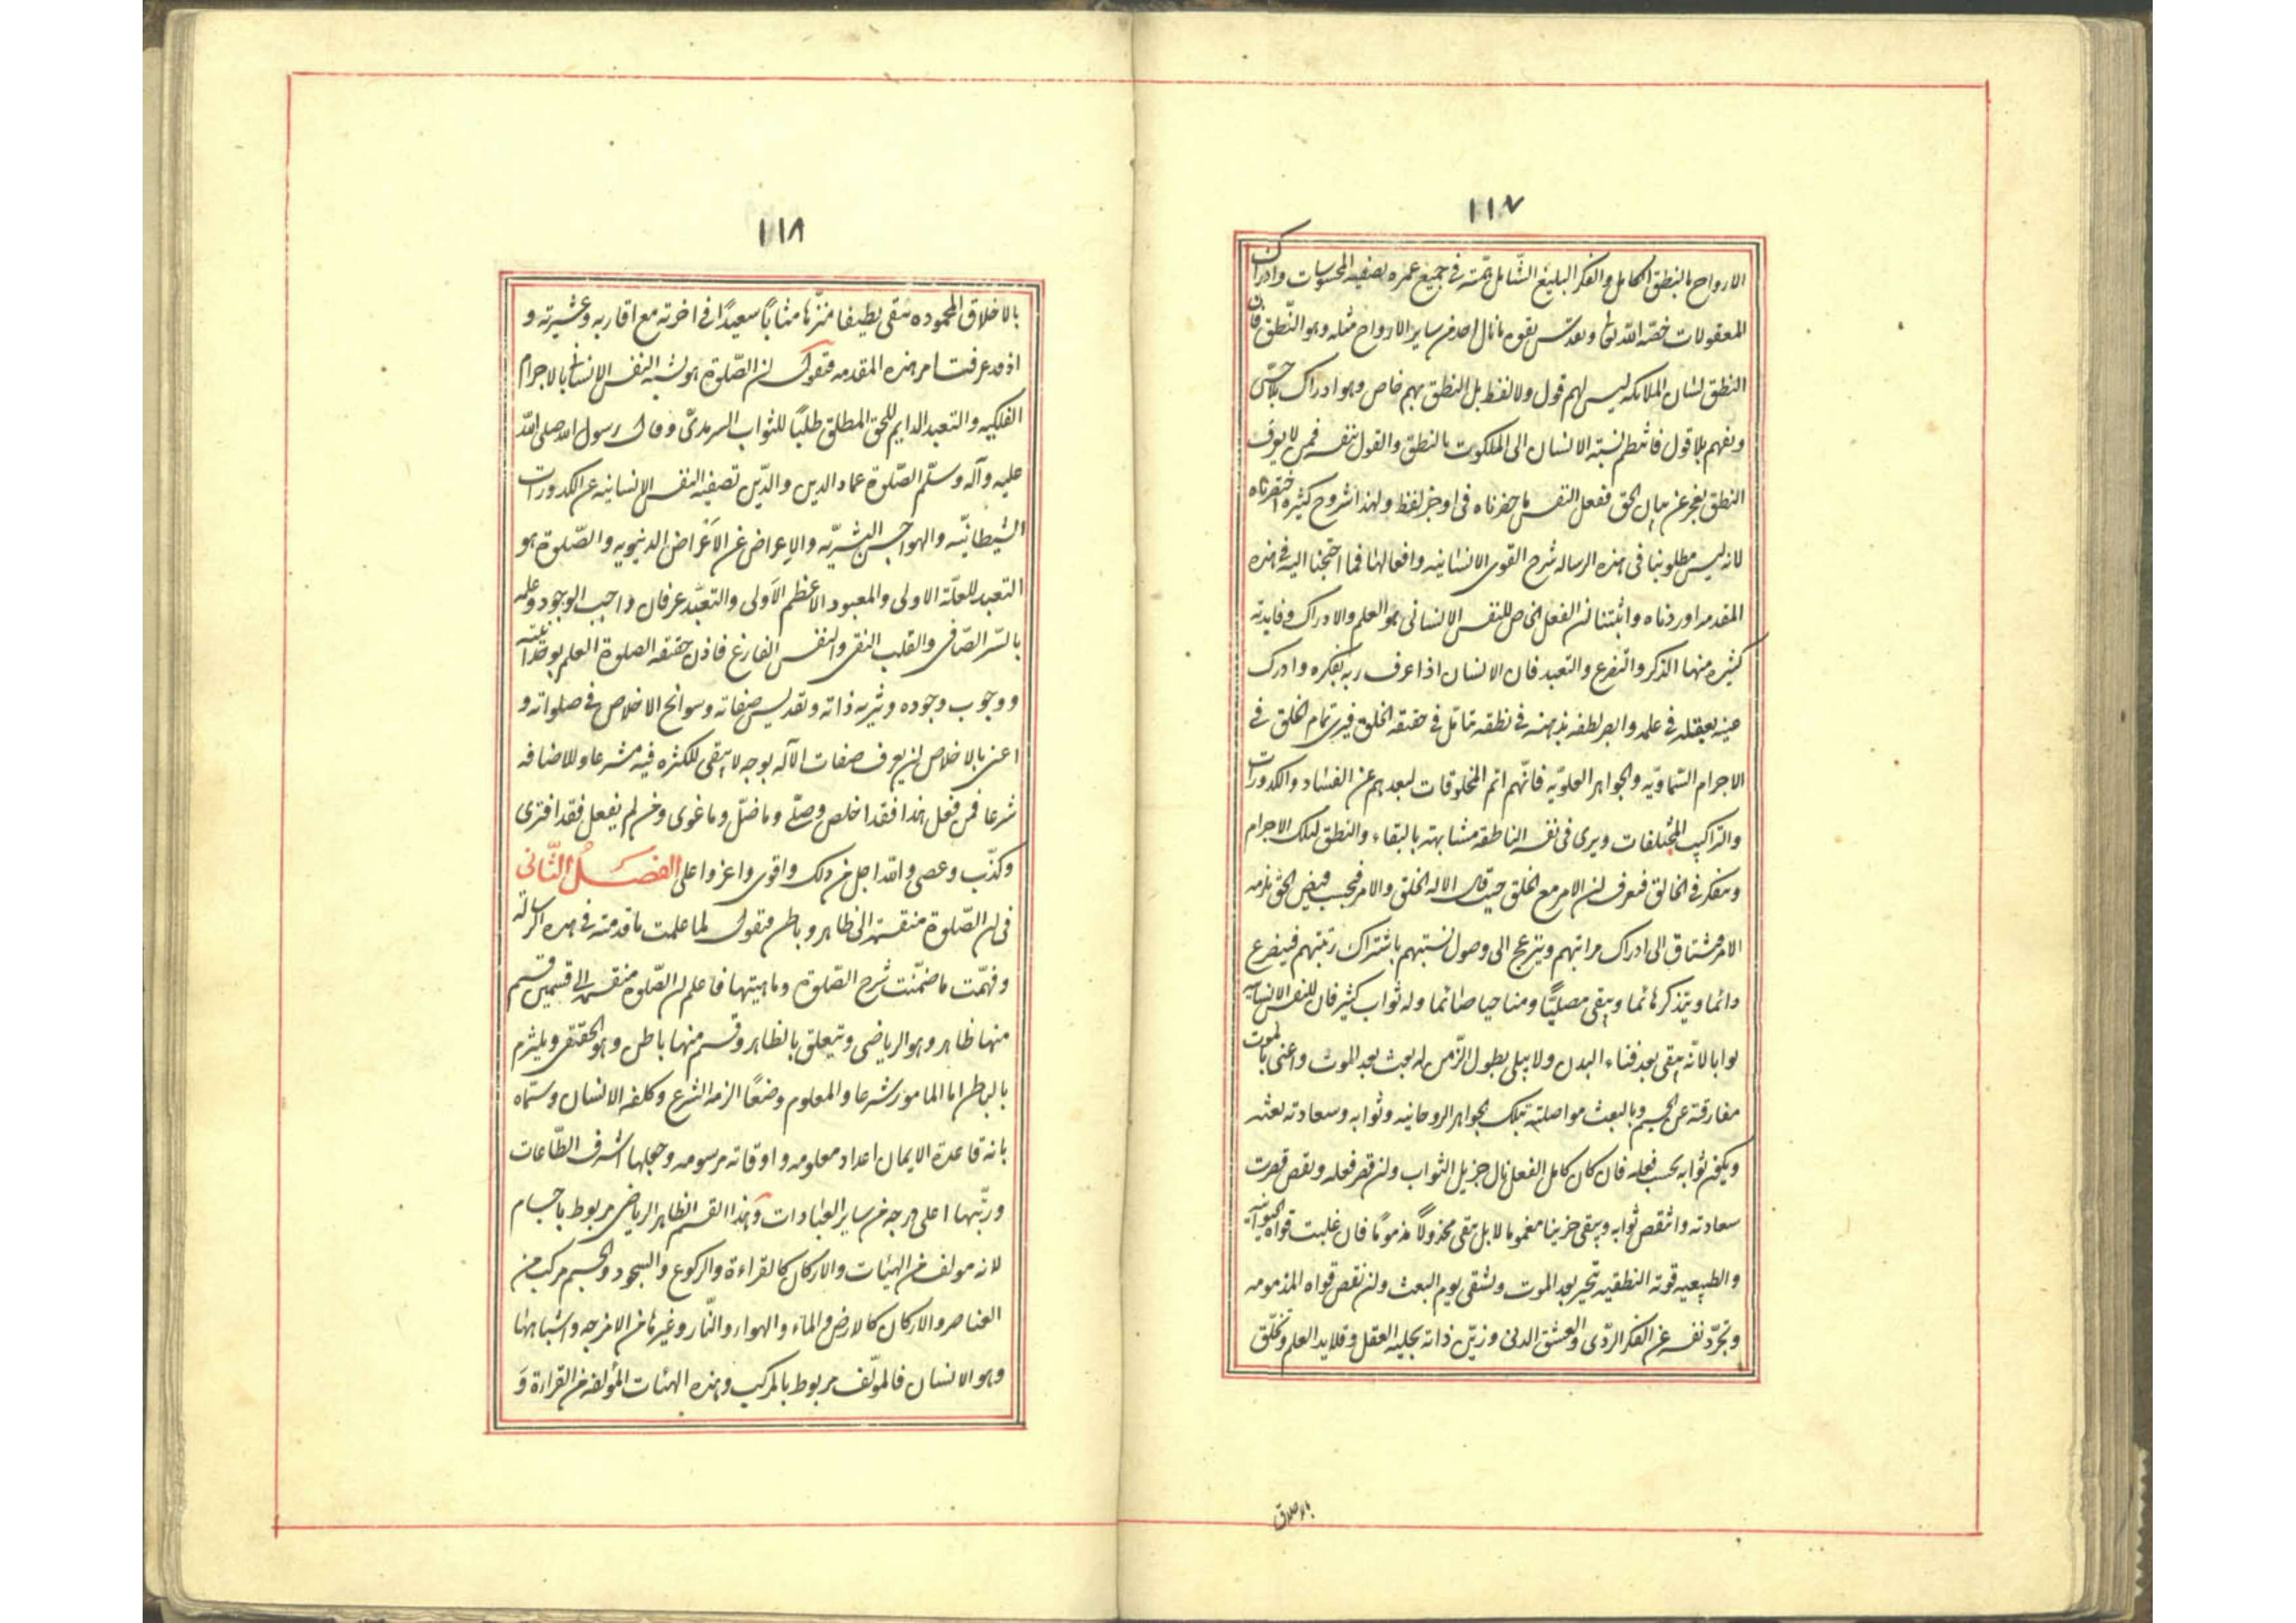 ١١٧
الارواح بالنطق الكامل والفكر البليغ الشّامل همّته في جميع عمره تصفية المحسوسات وادراك
المعقولات خصّه الله تعا بقوه ما نال احد من ساير الارواح مثله وهو النّطق فان
النطق لسان الملائكه ليس لهم قول ولا لفظ بل النطق بهم خاص وهو ادراك بلا حسّ
وتفهم بلا قول فانتظم نسبة الانسان الى الملكوت بالنطق والقول يتبعه فمن لا يعرف
النطق يعجز عن بيان الحق ففعل النفس ما حضرناه فى اوجز لفظ ولهذا شروح كثيره اختصرناه
لانه ليس مطلوبنا فى هذه الرساله شرح القوى الانسانيه وافعالها فما احتجنا اليه فى هذه
المقدمه اوردناه واثبتنا ان الفعل الخاص للنفس الانسانى هو العلم والادراك وفايدته
كثيره منها الذكر والتضرع والتعبد فان الانسان اذا عرف ربه بفكره وادرك
عينه بعقله فى علمه وابصر لطفه بذهنه فى نطقه تتامّل فى حقيقه الخلق فيرى تمام الخلق فى
الاجرام السّماويّه والجواهر العلويّه فانّهم اتم المخلوقات لبعدهم عن الفساد والكدورات
والتراكيب المختلفات ويرى فى نفسه الناطقه مشابهته بالبقاء والنطق لتلك الاجرام
وتفكر فى الخالق فعرف ان الامر مع الخلق حيث قال الا له الخلق والامر فيجب فيض الحق يلزمه
الامر فيشتاق الى ادراك مراتبهم وينزعج الى وصول نسبتهم باشتراك رتبتهم فيضرع
دائما ويتذكر هائما ويبقى مصلّيًا ومناجيا صائما وله ثواب كثير فان للنفس الانسانيه
ثوابا لانّه يبقى بعد فناء البدن ولا يبلى بطول الزّمن له بعث بعد الموت واعنى بالموت
مفارقته عن الجسم وبالبعث مواصلته بتلك الجواهر الروحانيه وثوابه وسعادته بعثه
ويكون ثوابه بحسب فعله فان كان كامل الفعل نال جزيل الثواب وان قصر فعله ونقص قصرت
سعادته وانتقص ثوابه ويبقى حزينا مغموما لا بل يبقى مخذولاً مذمومًا فان غلبت قواه الحيوانيه
والطبيعيه قوته النطقيه تحيّر بعد الموت وشقى يوم البعث وان نقص قواه المذمومه
وتجرّد نفسه عن الفكر الرّدى والعشق الدنى وزيّن ذاته بحلية العقل وقلايد العلم وتخلّق
بالاخلاق
١١٨
بالاخلاق المحموده يبقى لطيفا منزّها مثاباً سعيداً فى اخرته مع اقاربه وعشيرته و
اذ قد عرفت من هذه المقدمه فنقول ان الصّلوة هو تشبه النفس الانسانى بالاجرام
الفلكيه والتعبد الدايم للحق المطلق طلبًا للثواب السرمدىّ وقال رسول الله صلى الله
عليه وآله وسلّم الصّلوة عماد الدين والدّين تصفيه النفس الانسانيه عن الكدورات
الشيطانيّه والهواجس البشريّه والاِعراض عن الاَغراض الدنيويه والصّلوة هو
التعبد للعلّة الاولى والمعبود الاعظم الاَولى والتعبّد عرفان واجب الوجود وعلمه
بالسّر الصّافى والقلب النقى والنفس الفارغ فاذن حقيقه الصلوة العلم بوحدانيّته
ووجوب وجوده وتنزيه ذاته وتقديس صفاته وسوانح الاخلاص فى صلواته و
اعنى بالاخلاص ان يعرف صفات الآله بوجه لا يبقى للكثره فيه مشرعا وللاضافه
شرعا فمن فعل هذا فقد اخلص وصلّى وما ضلّ وما غوى ومن لم يفعل فقد افترى
وكذّب وعصى والله اجل من ذلك واقوى واعز واعلى الفصَلُ الثّانى
فى ان الصّلوة منقسمه الى ظاهر وباطن فنقول لما علمت ما قدمته فى هذه الرساله
وفهّمت ما ضمّنت شرح الصّلوة وماهيتها فاعلم ان الصّلوة منقسمه الى قسمين قسم
منها ظاهر وهو الرياضى ويتعلق بالظاهر وقسم منها باطن وهو الحقيقى ويلتزم
بالباطن اما المامور شرعا والمعلوم وضعًا الزمه الشرع وكلفه الانسان وسمّاه
بانه قاعدة الايمان اعداد معلومه واوقاته مرسومه وجعلها اشرف الطّاعات
ورتّبها اعلى درجه من ساير العبادات وهذا القسم الظاهر الرياضى مربوط باجسام
لانه مولف من الهيئات والاركان كالقراءة والركوع والسجود والجسم مركب من
العناصر والاركان كالارض والماء والهواء والنّار وغيرها من الامزجه واشباهها
وهو الانسان فالمولّف مربوط بالمركب وهذه الهيئات المؤلفه من القراءة وَ